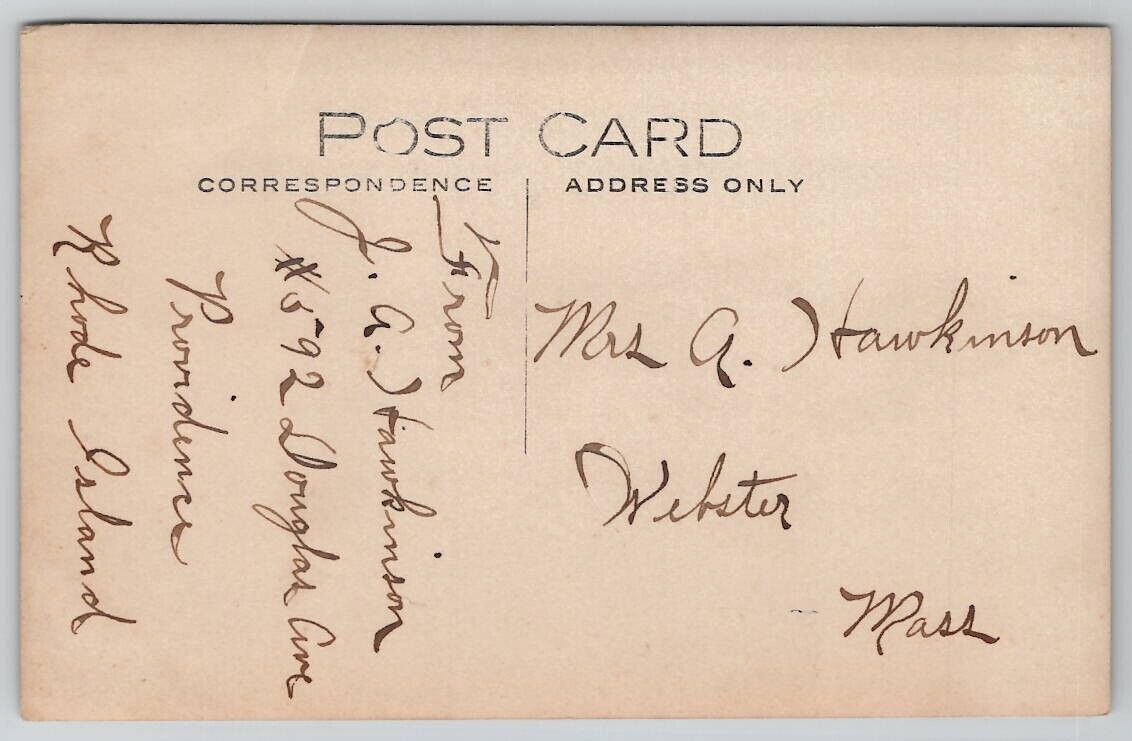 POST CARD
CORRESPONDENCE
ADDRESS ONLY
From
J. A. Hawkinson
#592 Douglas Ave
Providence
Rhode Island
Mrs A. Hawkinson
Webster
Mass